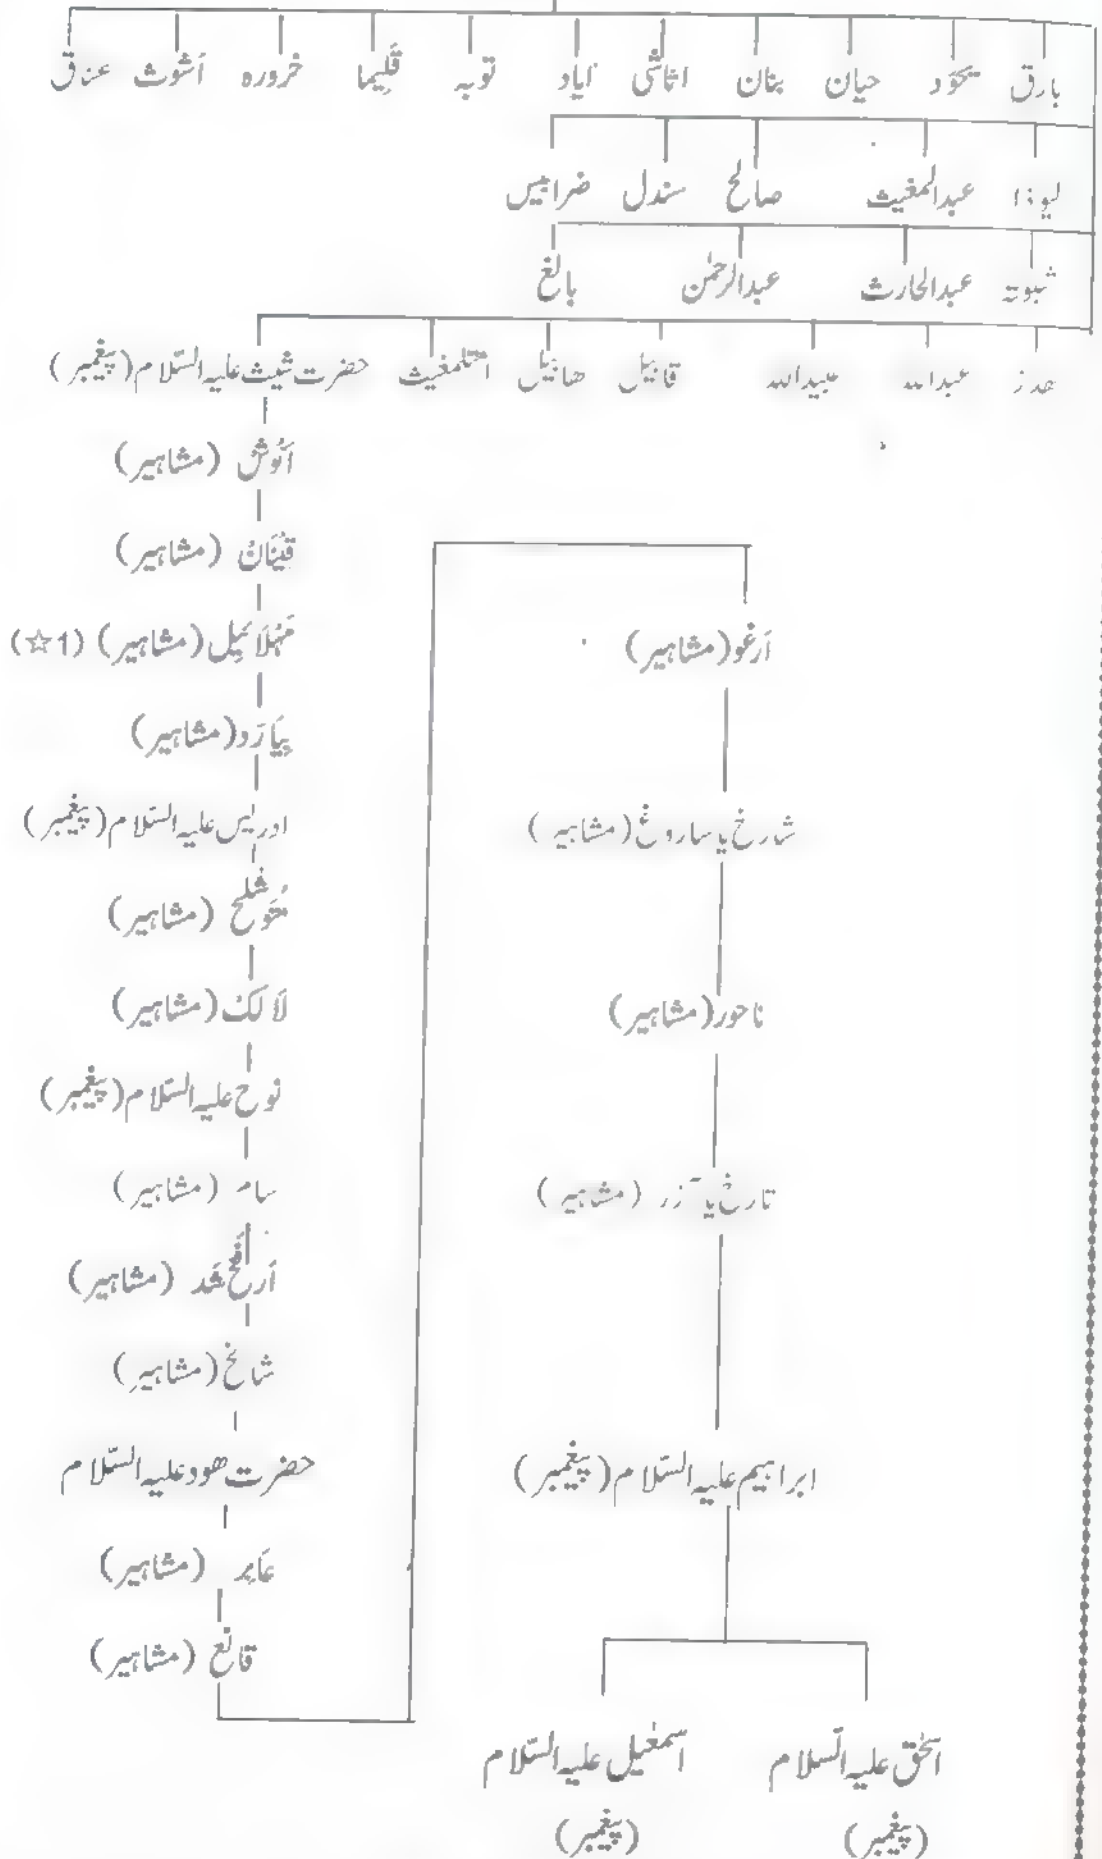 بارق یحوَد حیان بنان اثاثی آیاد توبہ قَلِیما خرورہ اَشوث عناق
لیوذا عبدالمغیث صالح سندل ضرابیس
شبوتہ عبدالحارث عبدالرحمٰن بالغ
عبداللہ عبیداللہ قابیل ھابیل حضرت شیث علیہ السّلام (پیغمبر)
اَنُوش (مشاہیر)
قَیْنَانْ (مشاہیر)
مَہْلَائِیل (مشاہیر) (☆1)
یَیَارَد (مشاہیر)
ادریس علیہ السّلام (پیغمبر)
مُتَوَشلح (مشاہیر)
لَالَکْ (مشاہیر)
نوح علیہ السّلام (پیغمبر)
سام (مشاہیر)
اَرفَخْشَد (مشاہیر)
شالخ (مشاہیر)
حضرت ھود علیہ السّلام
عَابِر (مشاہیر)
قانع (مشاہیر)
اَرغو (مشاہیر)
شارخ یا ساروغ (مشاہیر)
ناحور (مشاہیر)
تارخ یا آزر (مشاہیر)
ابراہیم علیہ السّلام (پیغمبر)
اسحٰق علیہ السّلام اسمٰعیل علیہ السّلام
(پیغمبر) (پیغمبر)